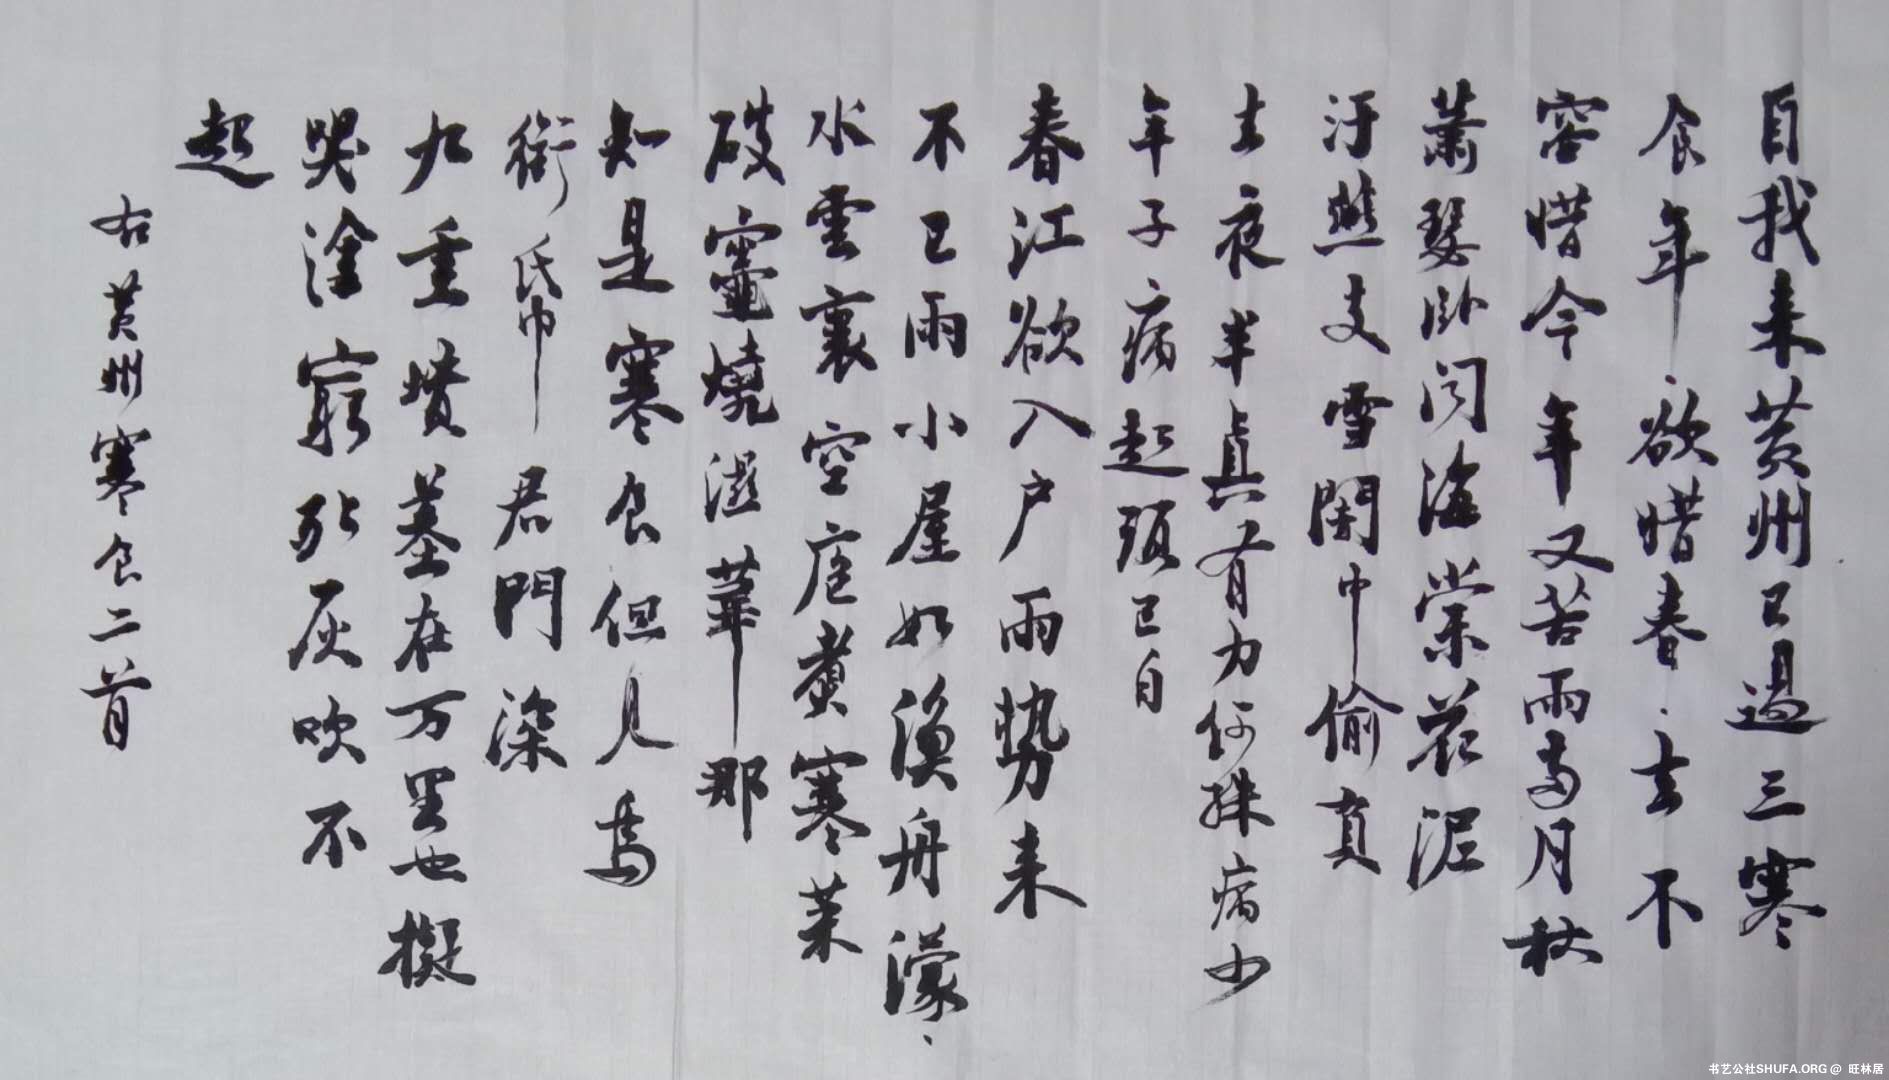 自我来黄州已過三寒
食年〻欲惜春〻去不
容惜今年又苦雨两月秋
蕭瑟卧闻海棠花泥
汙燕支雪闇中偷負
去夜半真有力何殊病少
年子病起頭已白
春江欲入户雨势来
不已雨小屋如漁舟濛〻
水雲裏空庖煮寒菜
破竈燒濕葦那
知是寒食但見烏
銜帋君門深
九重墳墓在万里也擬
哭塗窮死灰吹不
起
右黄州寒食二首
书艺公社SHUFA.ORG @ 旺林居